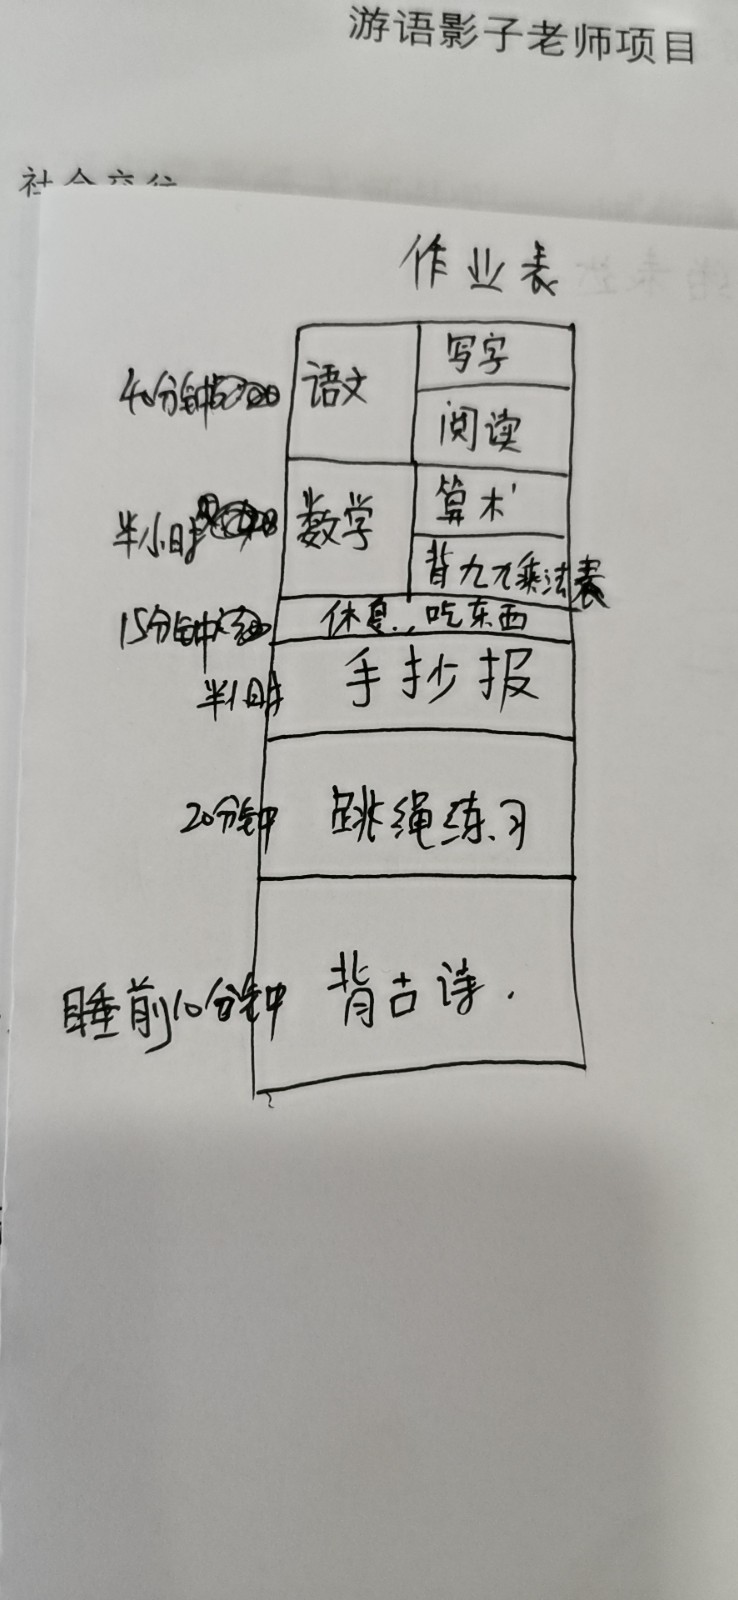 游语影子老师项目
社会交往
作业表
40分钟 语文 写字
阅读
半小时 数学 算术
背九九乘法表
15分钟 休息,吃东西
半小时 手抄报
20分钟 跳绳练习
睡前10分钟 背古诗.